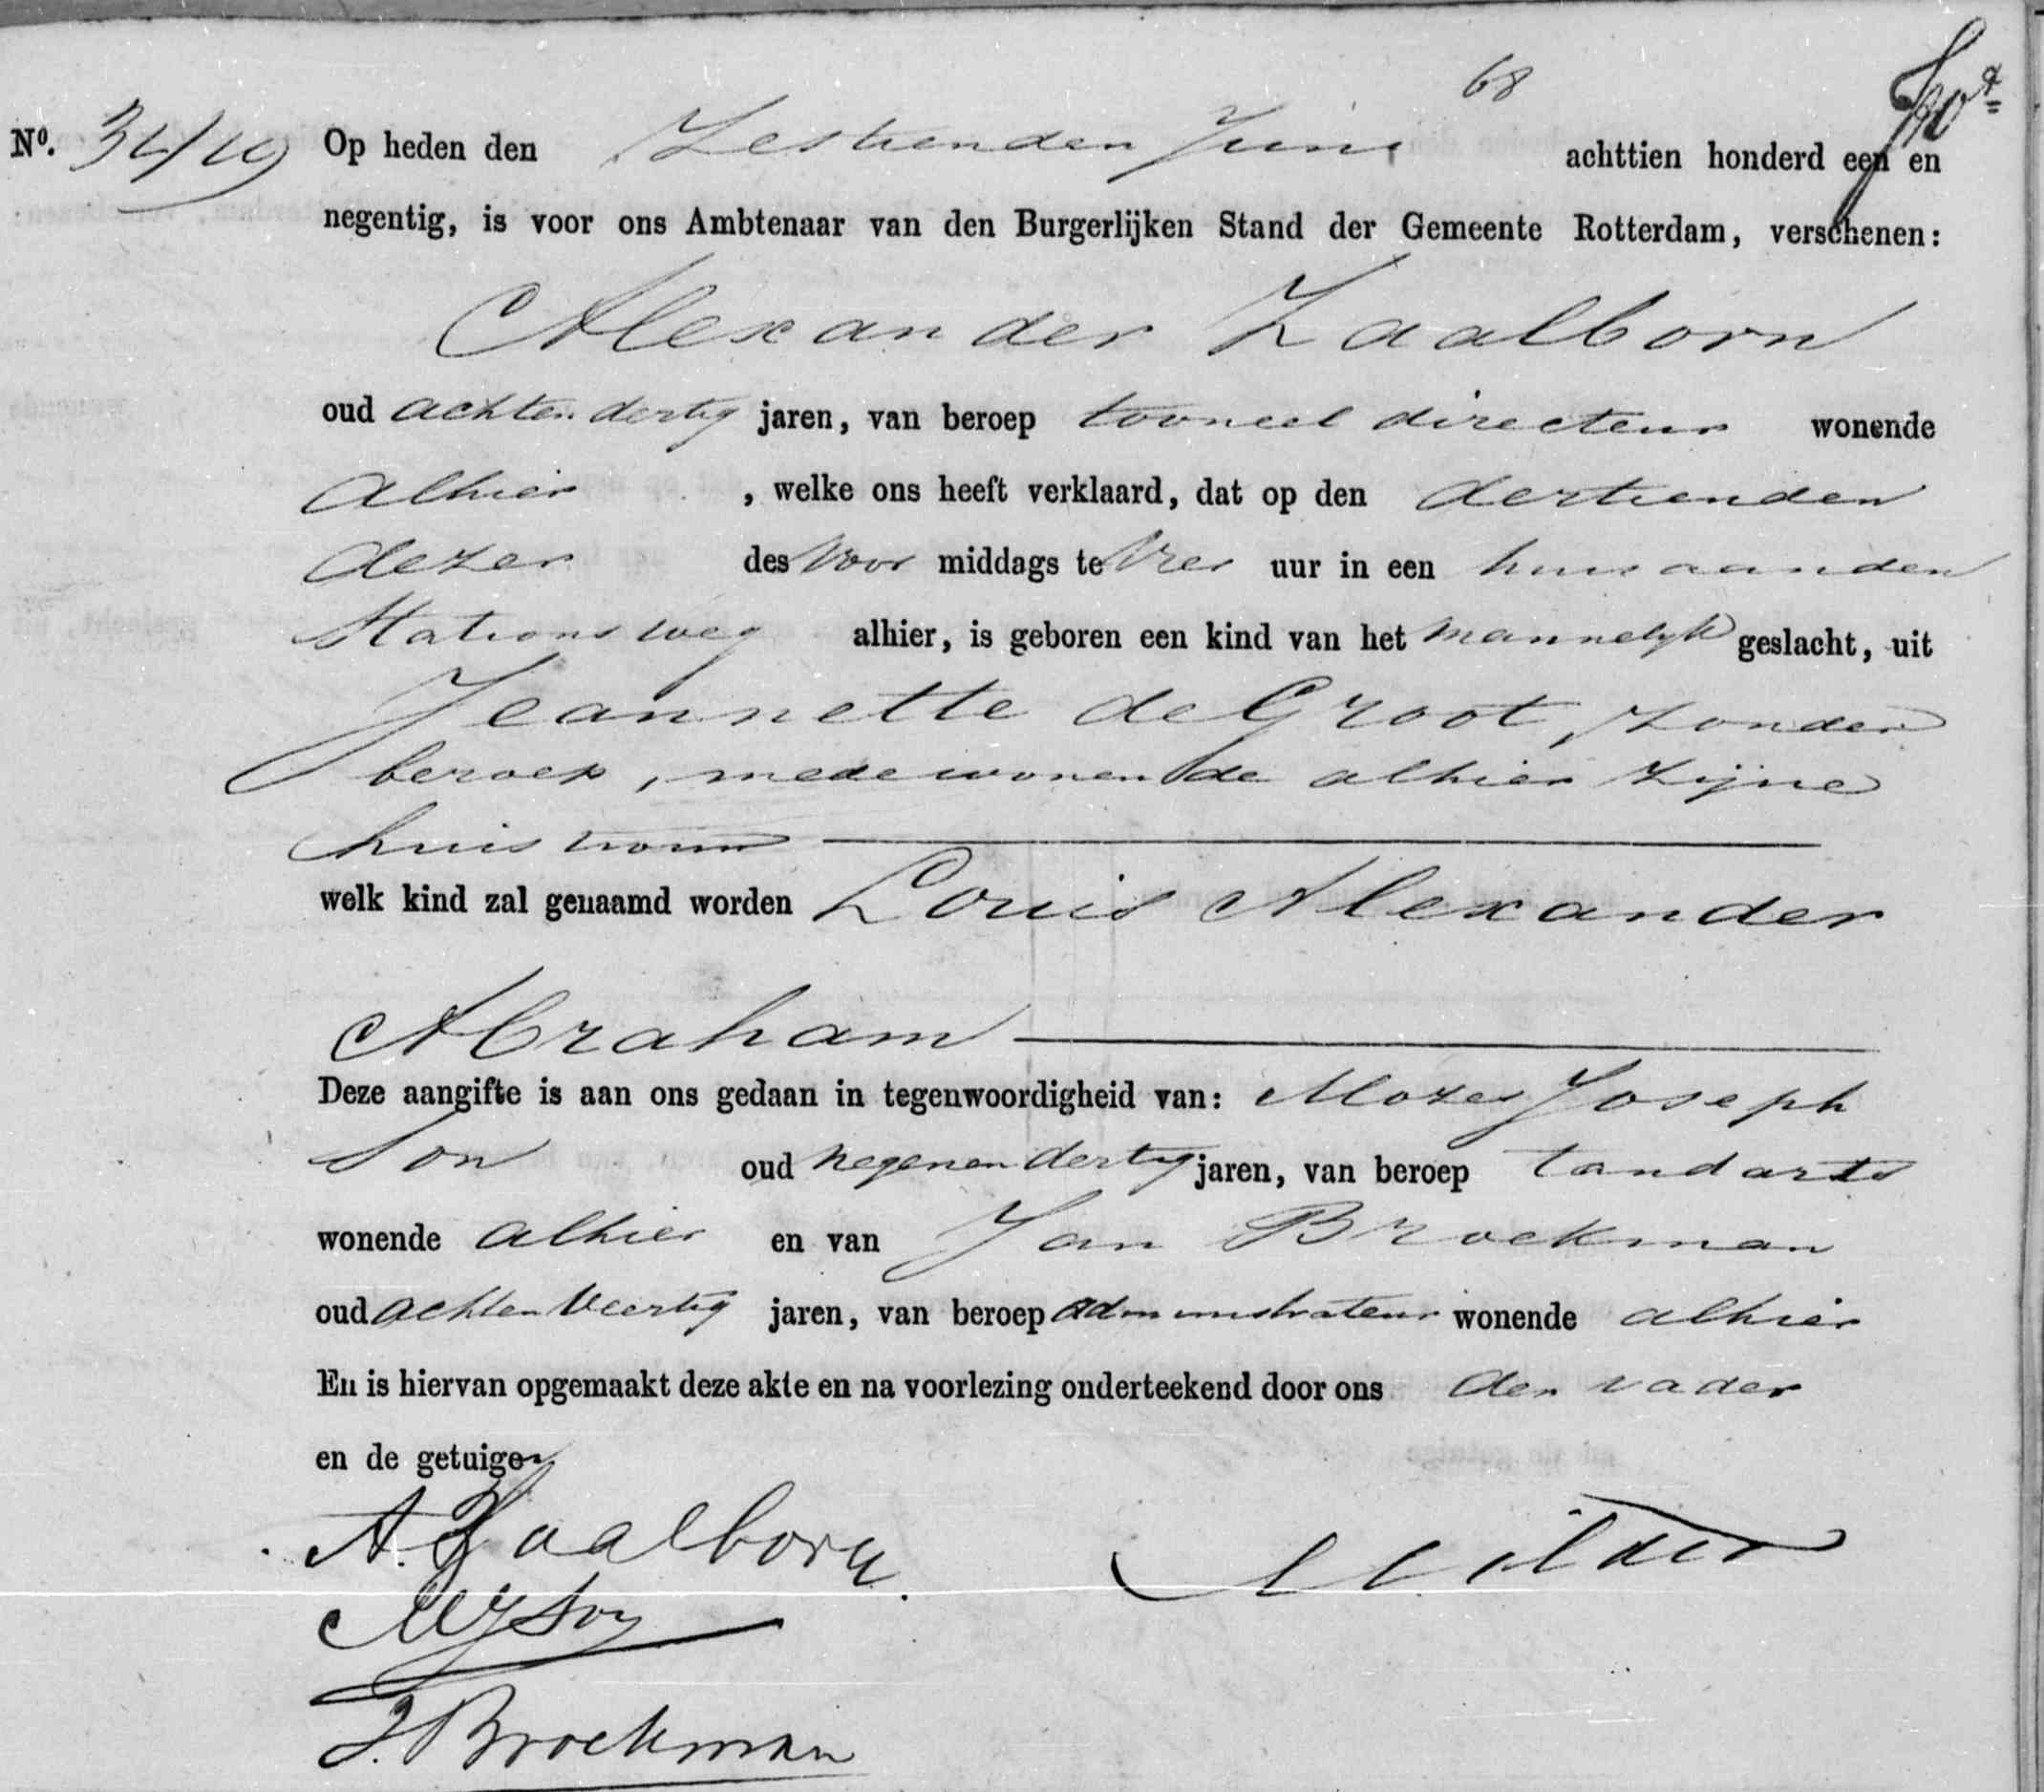 68
No. 3419 Op heden den Zestienden Juni achttien honderd een en
negentig, is voor ons Ambtenaar van den Burgerlijken Stand der Gemeente Rotterdam, verschenen:
Alexander Zaalborn
oud achten dertig jaren, van beroep tooneel directeur wonende
alhier , welke ons heeft verklaard, dat op den dertienden
dezer des Voor middags te Vier uur in een huis aan den
Stationsweg alhier, is geboren een kind van het mannelyk geslacht, uit
Jeannette de Groot, zonder
beroep, mede wonende alhier zijne
huisvrouw
welk kind zal genaamd worden Louis Alexander
Abraham
Deze aangifte is aan ons gedaan in tegenwoordigheid van: Mozes Joseph
Son oud negenen dertig jaren, van beroep tandarts
wonende alhier en van Jan Broekman
oud achten Veertig jaren, van beroep administrateur wonende alhier
En is hiervan opgemaakt deze akte en na voorlezing onderteekend door ons den vader
en de getuigen
A. Zaalborn.
MJSon
J. Broekman